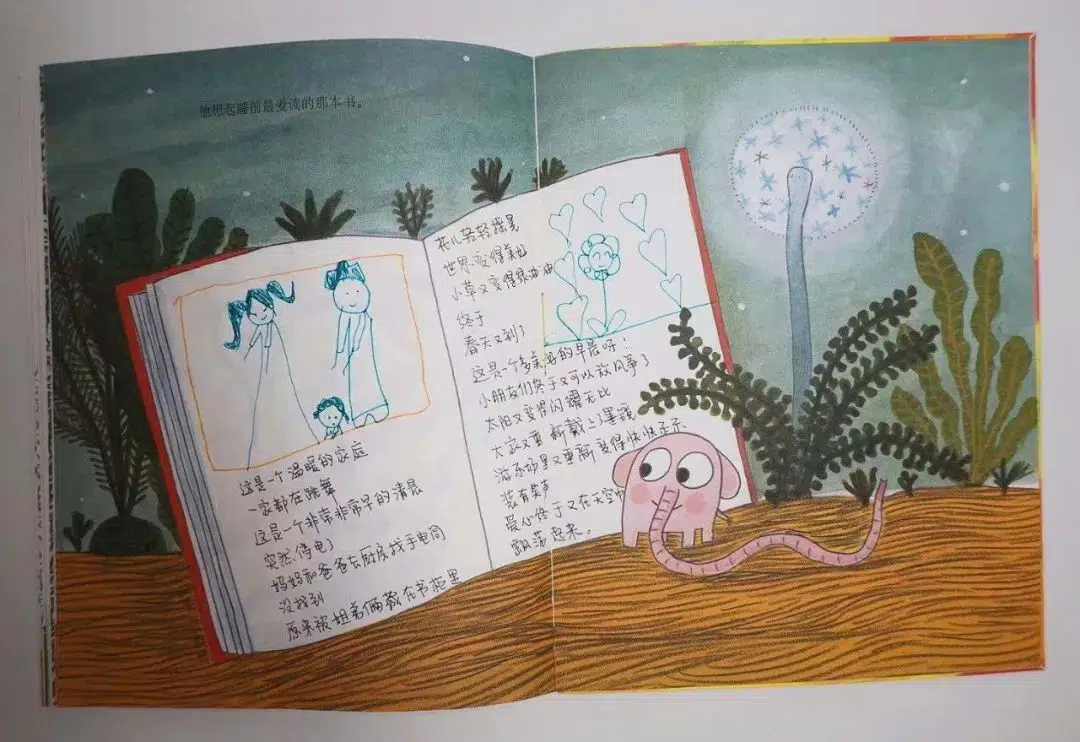 他想起睡前最爱读的那本书。
这是一个温暖的家庭
一家都在跳舞
这是一个非常非常早的清晨
突然停电了
妈妈和爸爸去厨房找手电筒
没找到
原来被姐弟俩藏在书柜里
花儿轻轻摇晃
世界变得美
小草又变得绿油油
终于
春天又到了
这是一个多美好的早晨呀！
小朋友们终于又可以放风筝了
太阳又变得闪耀无比
大家又重新戴上墨镜
游乐场里又重新变得快快乐乐
装有笑声
爱心终于又在天空中
飘荡起来。